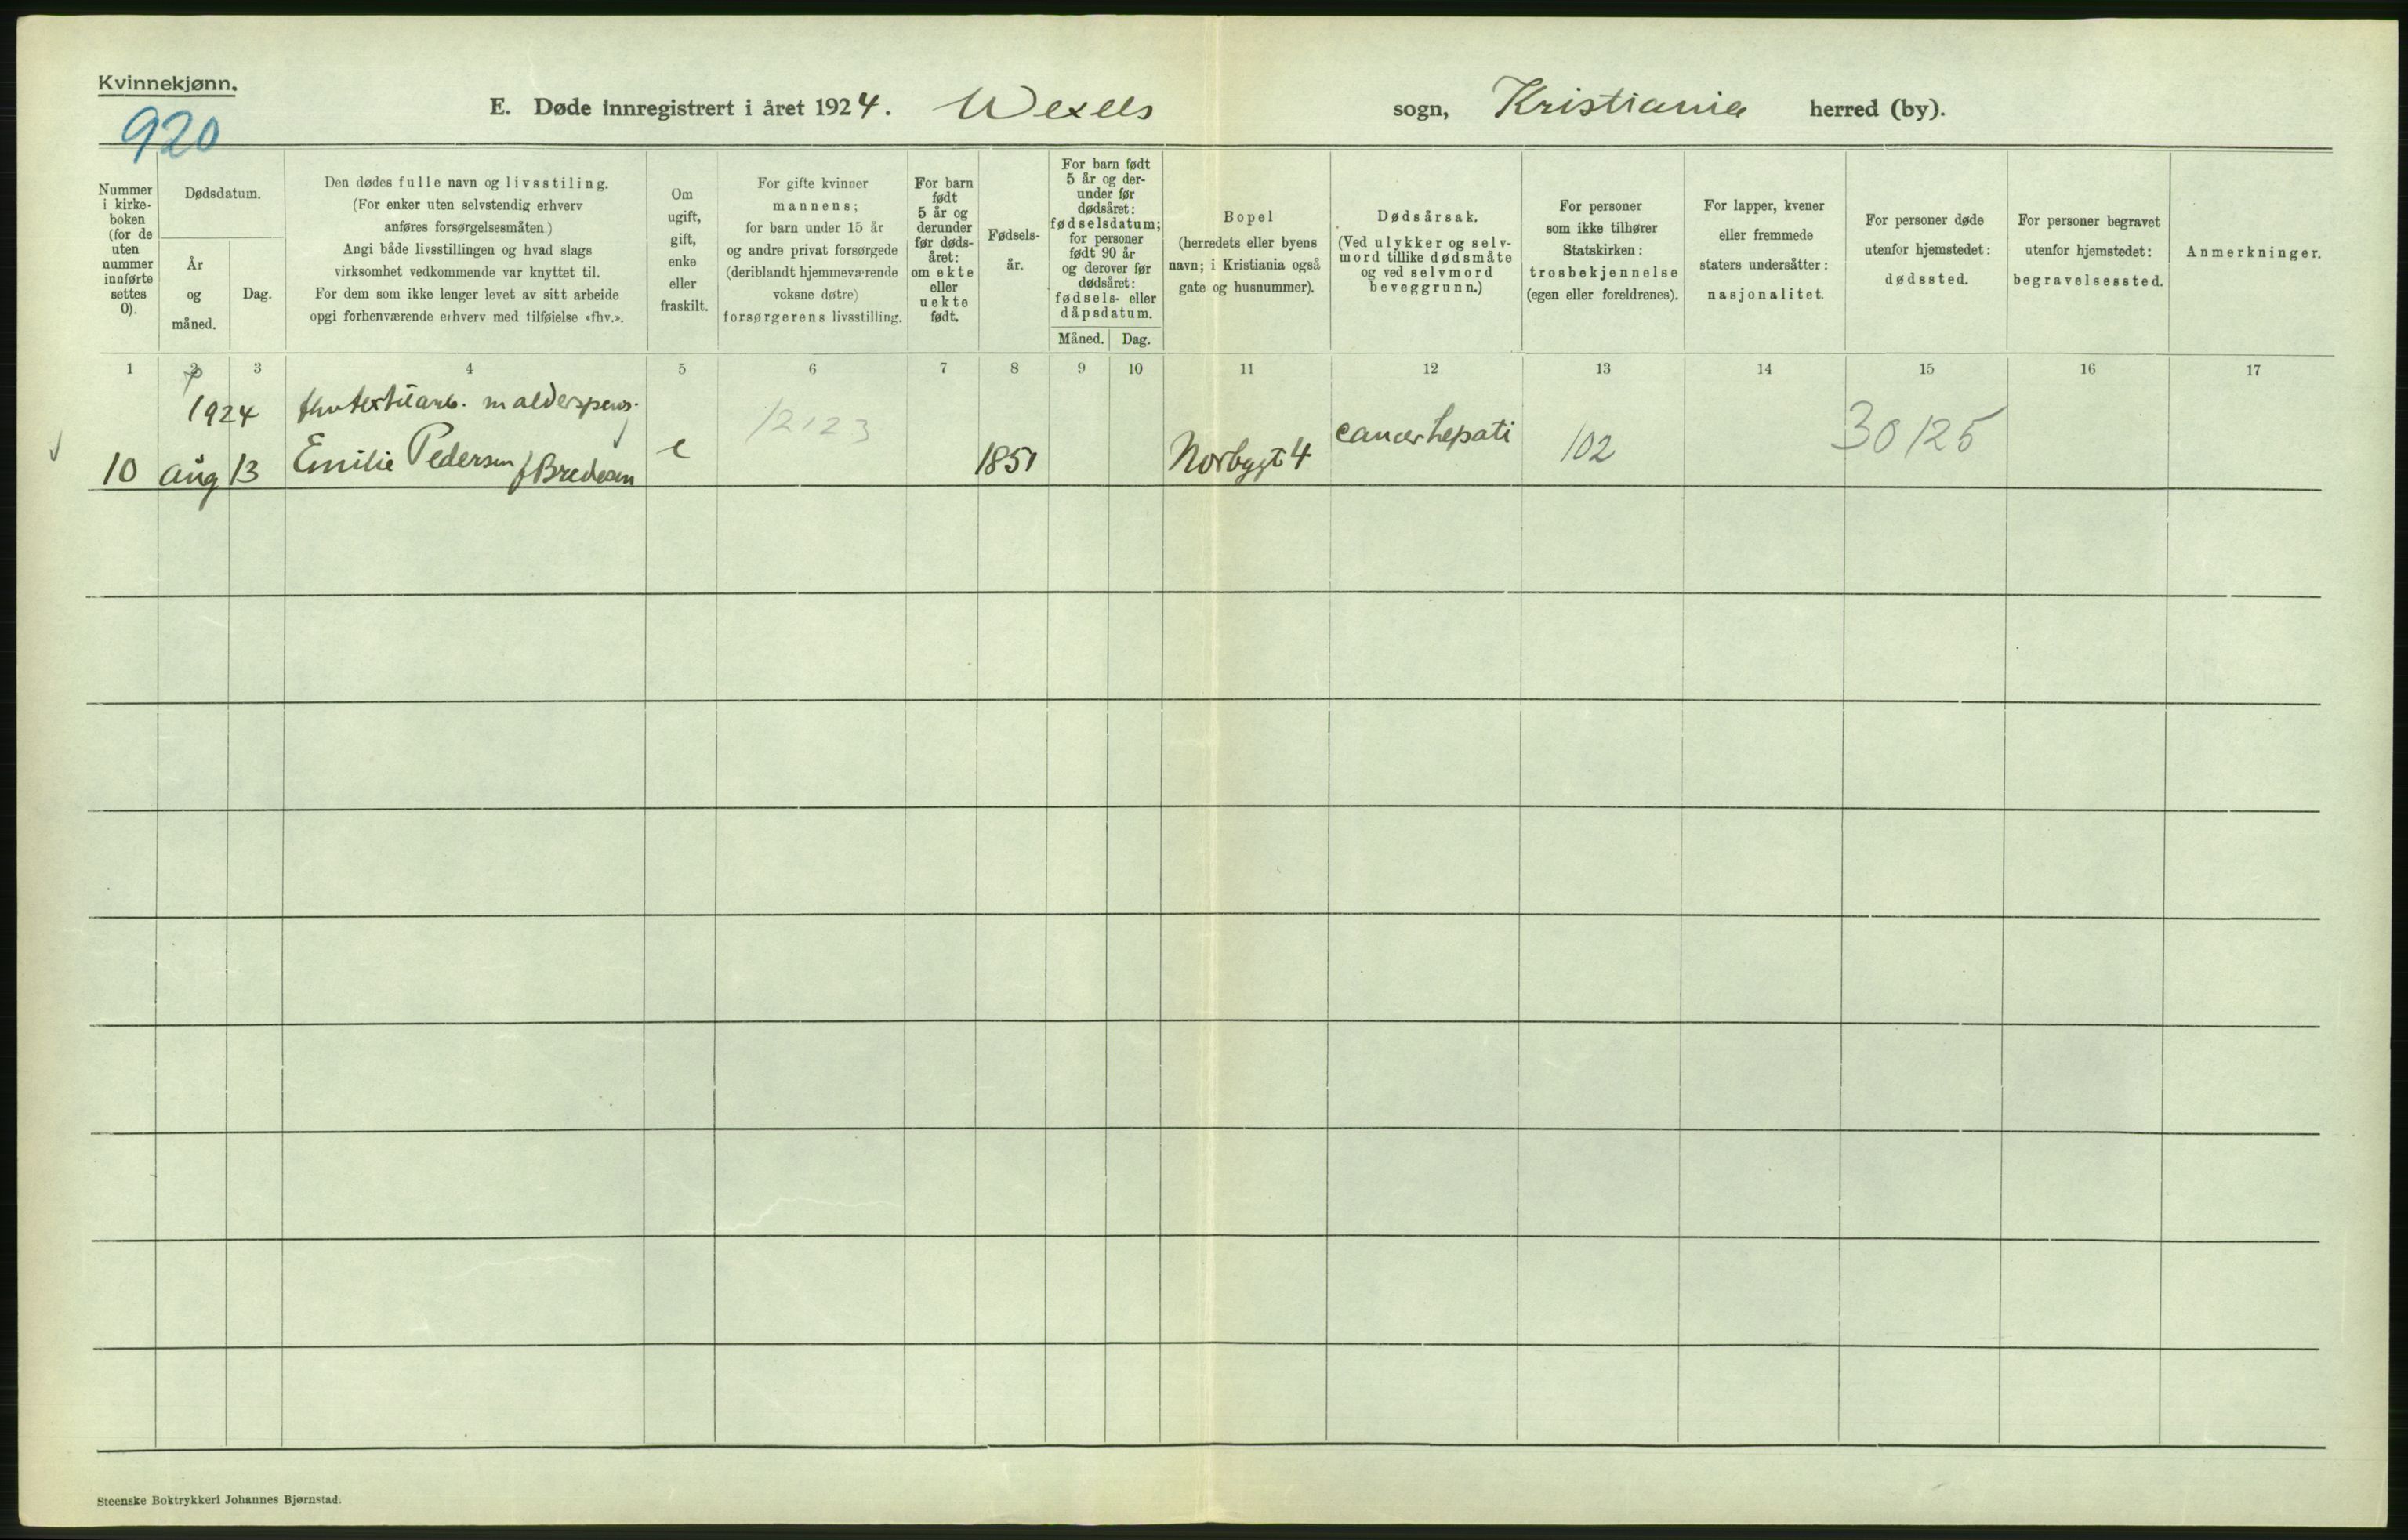 Kvinnekjønn.
920
E. Døde innregistrert i året 1924. Wexels sogn, Kristiania herred (by).
Nummer
i kirke-
boken
(for de
uten
nummer
innførte
settes
0).
Dødsdatum.
År
og
måned.
Dag.
Den dødes fulle navn og livsstiling.
(For enker uten selvstendig erhverv
anføres forsørgelsesmåten.)
Angi både livsstillingen og hvad slags
virksomhet vedkommende var knyttet til.
For dem som ikke lenger levet av sitt arbeide
opgi forhenværende erhverv med tilføielse «fhv.».
Om
ugift,
gift,
enke
eller
fraskilt.
For gifte kvinner
mannens;
for barn under 15 år
og andre privat forsørgede
(deriblandt hjemmeværende
voksne døtre)
forsørgerens livsstilling.
For barn
født
5 år og
derunder
før døds-
året:
om ekte
eller
uekte
født.
Fødsels-
år.
For barn født
5 år og der-
under før
dødsåret:
fødselsdatum;
for personer
født 90 år
og derover før
dødsåret:
fødsels- eller
dåpsdatum.
Måned. Dag.
Bopel
(herredets eller byens
navn; i Kristiania også
gate og husnummer).
Dødsårsak.
(Ved ulykker og selv-
mord tillike dødsmåte
og ved selvmord
beveggrunn.)
For personer
som ikke tilhører
Statskirken:
trosbekjennelse
(egen eller foreldrenes).
For lapper, kvener
eller fremmede
staters undersåtter:
nasjonalitet.
For personer døde
utenfor hjemstedet:
dødssted.
For personer begravet
utenfor hjemstedet:
begravelsessted.
Anmerkninger.
1 2 3 4 5 6 7 8 9 10 11 12 13 14 15 16 17
1924 fhv textilarb. m alderspens.
10 aug 13 Emilie Pedersen f Bredesen e 12123 1851 Norbygt 4 cancer hepati 102 30125
Steenske Boktrykkeri Johannes Bjørnstad.